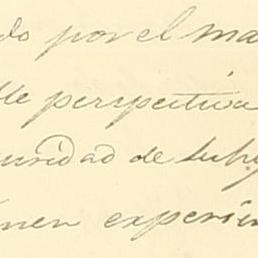 do por el ma
lle perspectiva
uridad de suby
inen experien